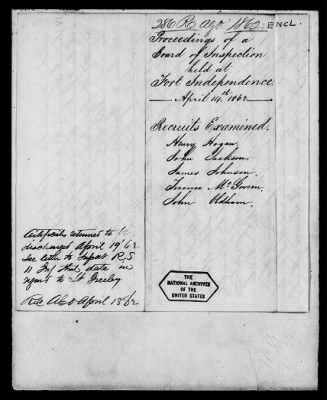 286 R. AGO 1862. ENCL.
Proceedings of a
Board of Inspection
held at
Fort Independence.
April 14th 1862
Recruits Examined.
Henry Hogan.
John Jackson.
James Johnson.
Terence McGovern.
John Oldham.
Certificates returned to
discharged April 19/62
See letter to Supt R.S.
11 Inf that date in
regard to Lt Greeley
Rec AGO April 18/62
THE
NATIONAL ARCHIVES
OF THE
UNITED STATES